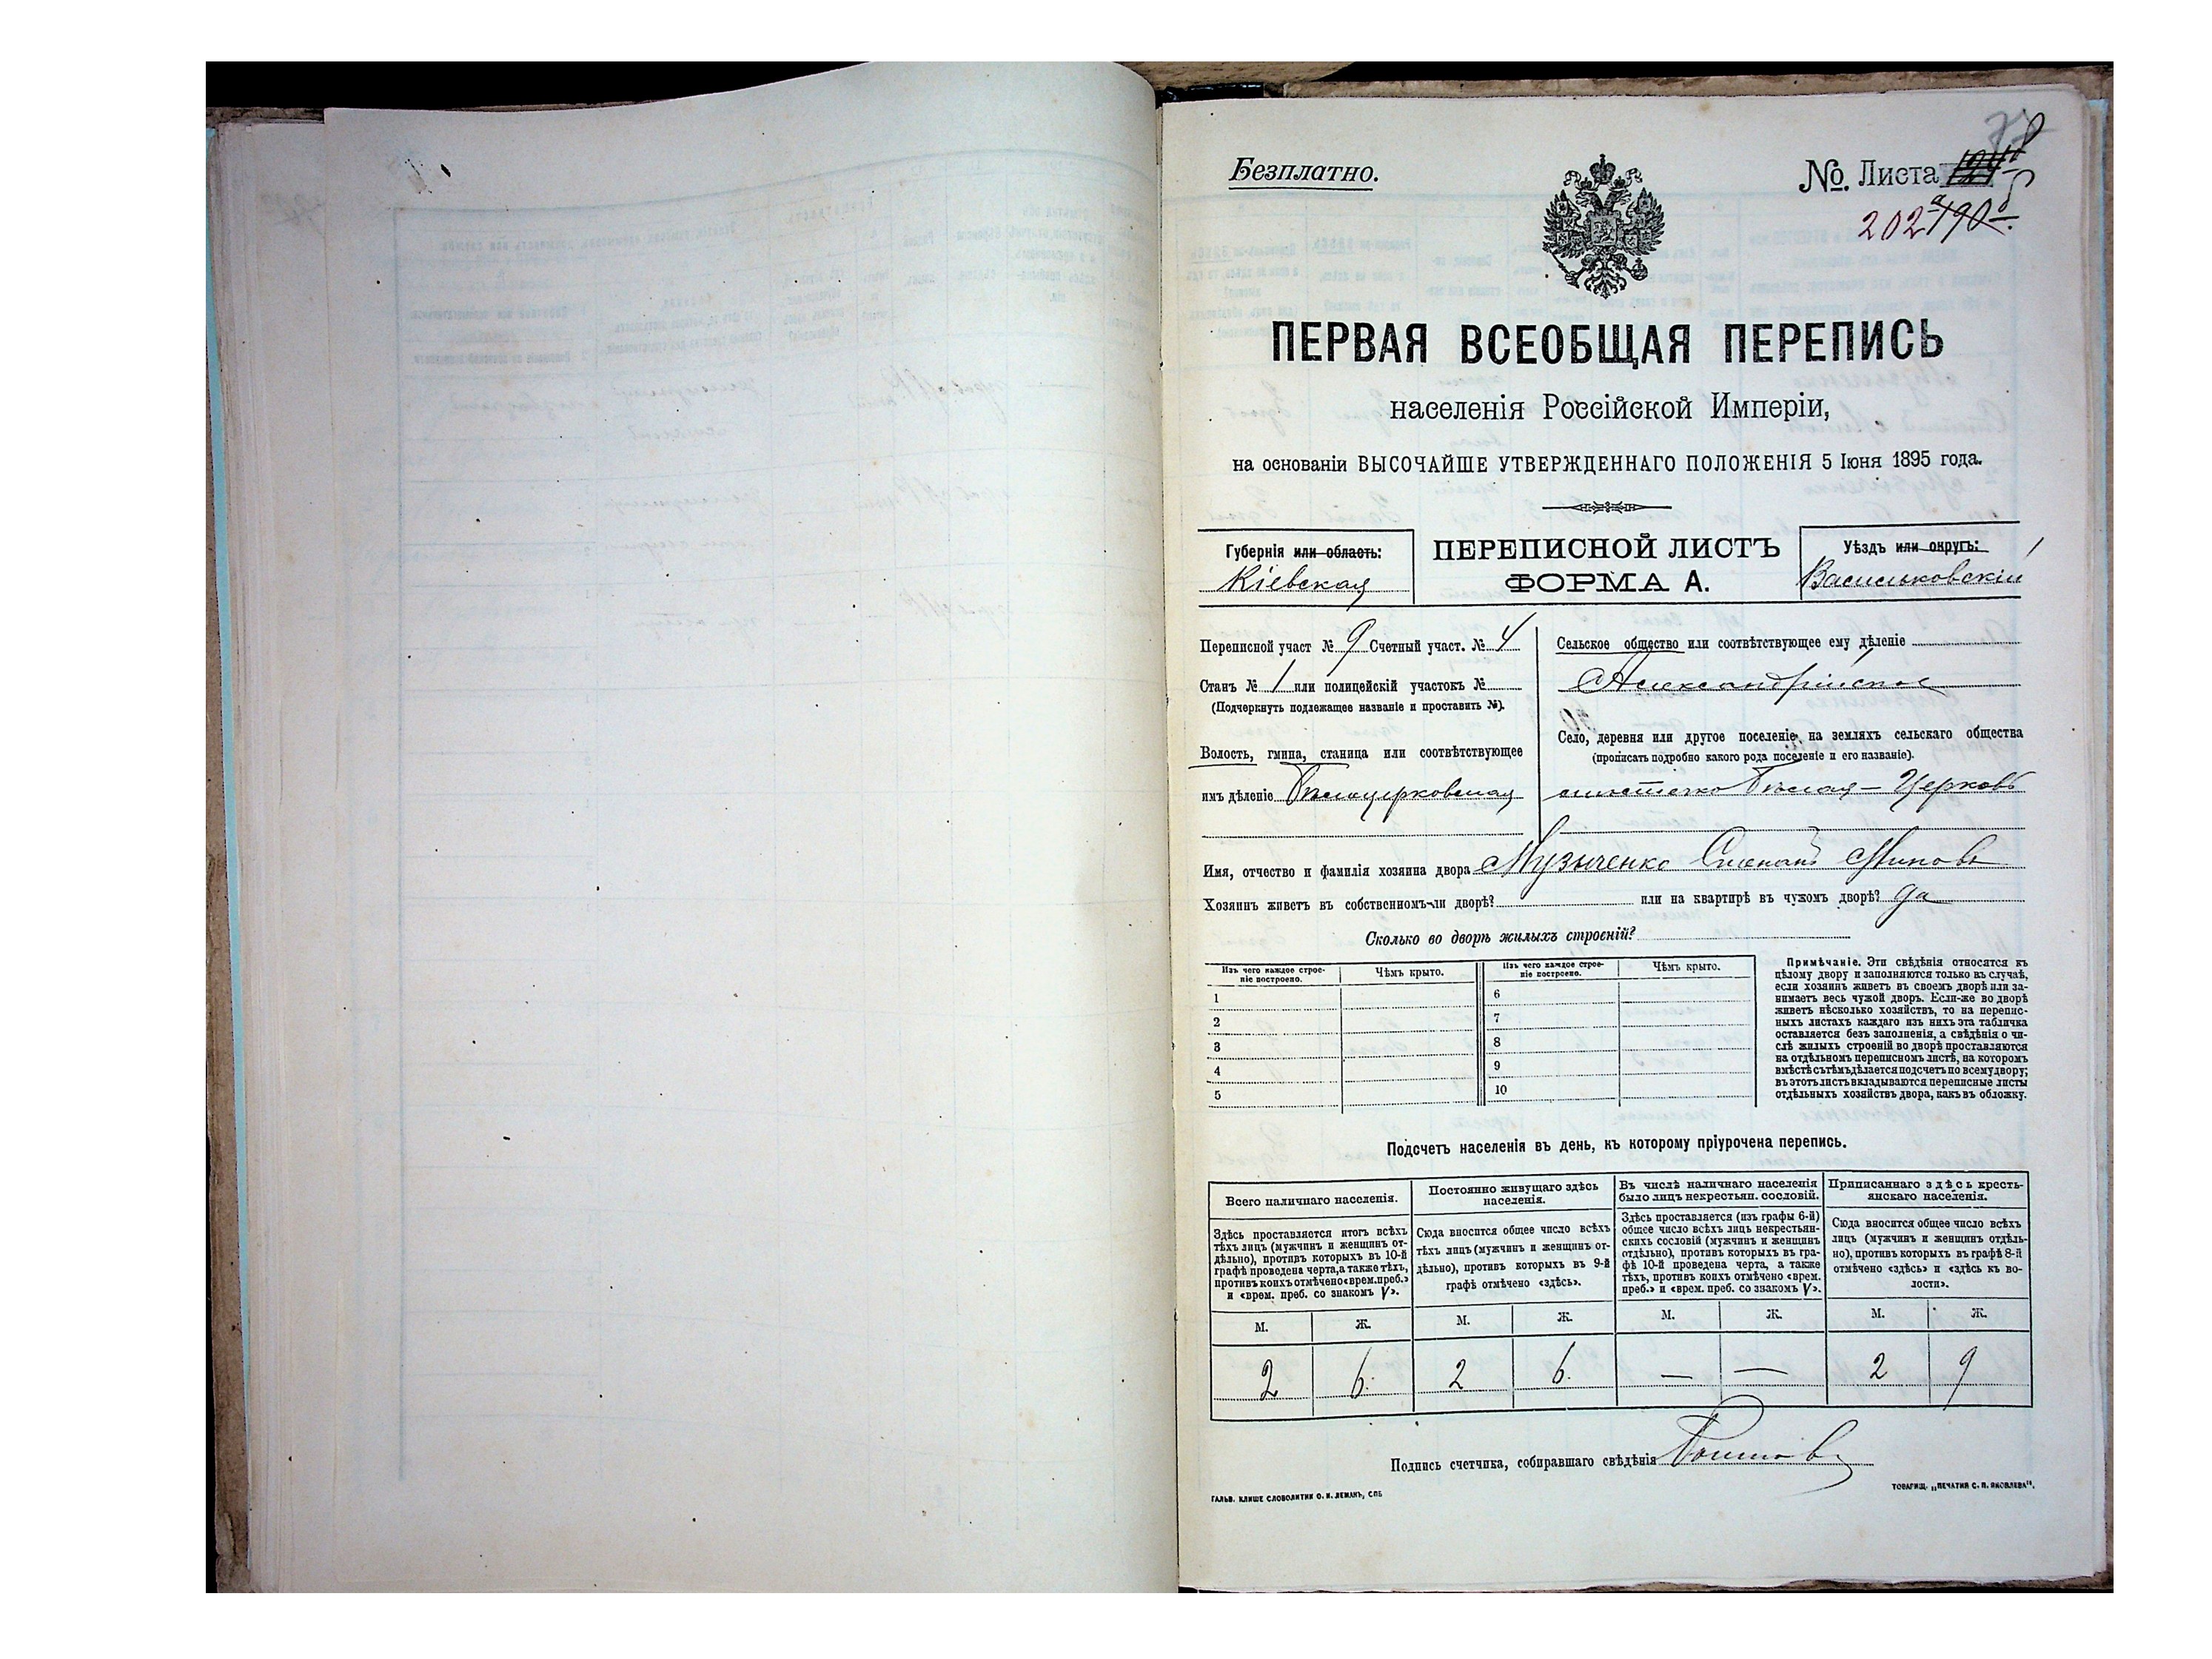 Безплатно.
№. Листа
202
ПЕРВАЯ ВСЕОБЩАЯ ПЕРЕПИСЬ
населенія Россійской Имперіи,
на основаніи ВЫСОЧАЙШЕ УТВЕРЖДЕННАГО ПОЛОЖЕНІЯ 5 Іюня 1895 года.
Губернія или область:
Кіевская
ПЕРЕПИСНОЙ ЛИСТЪ
ФОРМА А.
Уѣздъ или округъ:
Васильковскій
Переписной участ № 9 Счетный участ. № 4
Станъ № 1 или полицейскій участокъ №
(Подчеркнуть подлежащее названіе и проставить №).
Волость, гмина, станица или соотвѣтствующее
имъ дѣленіе Бѣлоцерковская
Сельское общество или соотвѣтствующее ему дѣленіе
Александрійское
Село, деревня или другое поселеніе, на земляхъ сельскаго общества
(прописать подробно какого рода поселеніе и его названіе).
мѣстечко Бѣлая-Церковь
Имя, отчество и фамилія хозяина двора Музыченко Степанъ Миновъ
Хозяинъ живетъ въ собственномъ-ли дворѣ? или на квартирѣ въ чужомъ дворѣ? да
Сколько во дворѣ жилыхъ строеній?
Изъ чего каждое строе-
ніе построено.
Чѣмъ крыто.
Изъ чего каждое строе-
ніе построено.
Чѣмъ крыто.
1
2
3
4
5
6
7
8
9
10
Примѣчаніе. Эти свѣдѣнія относятся къ
цѣлому двору и заполняются только въ случаѣ,
если хозяинъ живетъ въ своемъ дворѣ или за-
нимаетъ весь чужой дворъ. Если-же во дворѣ
живетъ нѣсколько хозяйствъ, то на перепис-
ныхъ листахъ каждаго изъ нихъ эта табличка
оставляется безъ заполненія, а свѣдѣнія о чи-
слѣ жилыхъ строеній во дворѣ проставляются
на отдѣльномъ переписномъ листѣ, на которомъ
вмѣстѣ съ тѣмъ дѣлается подсчетъ по всему двору;
въ этотъ листъ вкладываются переписные листы
отдѣльныхъ хозяйствъ двора, какъ въ обложку.
Подсчетъ населенія въ день, къ которому пріурочена перепись.
Всего наличнаго населенія.
Здѣсь проставляется итогъ всѣхъ
тѣхъ лицъ (мужчинъ и женщинъ от-
дѣльно), противъ которыхъ въ 10-й
графѣ проведена черта, а также тѣхъ,
противъ коихъ отмѣчено «врем. преб.»
и «врем. преб. со знакомъ V».
Постоянно живущаго здѣсь
населенія.
Сюда вносится общее число всѣхъ
тѣхъ лицъ (мужчинъ и женщинъ от-
дѣльно), противъ которыхъ въ 9-й
графѣ отмѣчено «здѣсь».
Въ числѣ наличнаго населенія
было лицъ некрестьян. сословій.
Здѣсь проставляется (изъ графы 6-й)
общее число всѣхъ лицъ некрестьян-
скихъ сословій (мужчинъ и женщинъ
отдѣльно), противъ которыхъ въ гра-
фѣ 10-й проведена черта, а также
тѣхъ, противъ коихъ отмѣчено «врем.
преб.» и «врем. преб. со знакомъ V».
Приписаннаго здѣсь кресть-
янскаго населенія.
Сюда вносится общее число всѣхъ
лицъ (мужчинъ и женщинъ отдѣль-
но), противъ которыхъ въ графѣ 8-й
отмѣчено «здѣсь» и «здѣсь къ во-
лости».
М. Ж. М. Ж. М. Ж. М. Ж.
2 6. 2 6. — — 2 9
Подпись счетчика, собиравшаго свѣдѣнія
ГАЛЬВ. КЛИШЕ СЛОВОЛИТНИ О. И. ЛЕМАНЪ, СПБ
ТОВАРИЩ. „ПЕЧАТНЯ С. П. ЯКОВЛЕВА".